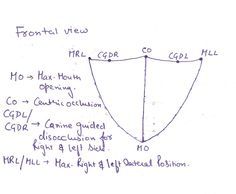 Frontal view
MRL CGDR CO CGDL MLL
MO → Max-Mouth
opening.
CO → Centric occlusion.
CGDL/
CGDR → Canine guided
disocclusion for
Right & left side.
MRL/MLL → Max-Right & left lateral position.
MO